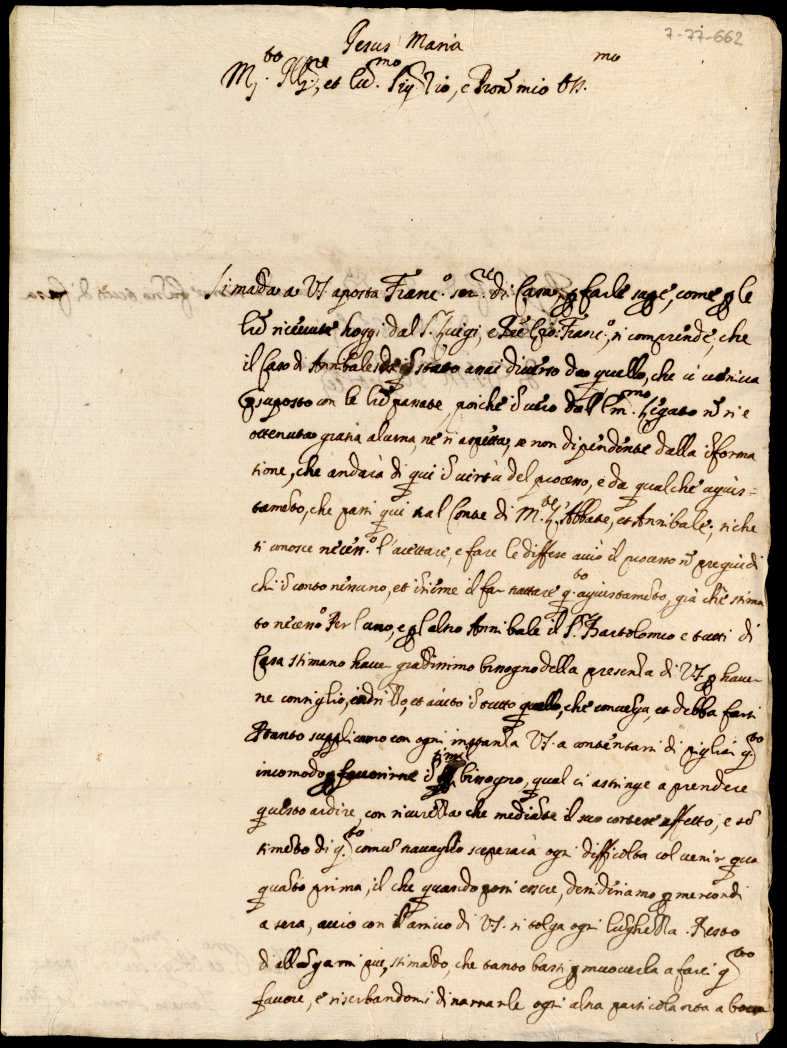 7-77-662
Jesus Maria
M.to Ill.re, et Ecc.mo Sig. Zio, e Pron mio Oss.mo
Si manda a VS aposta Franc.o ser.re di Casa, p farle sape, come p le
lre ricevute hoggi dal S. Luigi, e Franc.o, si comprende, che
il Caso di Annibale sia stato assai diverso da quello, che ci veniva
psuposto con le lre passate, poiche in vero dall' Em.mo Legato nõ si è
ottenuta gratia alcuna, ne si aspetta, se non dipendente dalla informa
tione, che andarà di qui in virtù del processo, e da qualche agius-
tamẽto, che passi qui tra l Conte di M.te l'Abbate, et Annibale; si che
si conosce necess.o l'accettare, e fare le diffese acciò il processo nõ pregiudi
chi in conto nessuno, et insieme il far trattare q.to agiustamẽto, già che stima
to necess.o Per l'uno, e p l'altro Annibale il S.r Bartolomeo e tutti di
Casa stimano haver grandissimo bisogno della presenza di VS p haver
ne consiglio, indrizzo, et aiuto in tutto quello, che convenga, et debba farsi
Ptanto supplicamo con ogni instanza VS a contentarsi di pigliar q.to
incomodo p favorirne in bisogno, qual ci astringe a prendere
questo ardire, con sicurezza che mediãte il suo cortese affetto, e sẽ
timẽto di q.to comun travaglio superarà ogni difficoltà col venir qua
quãto prima, il che quando possi essere, desideriamo p mercordì
a sera, acciò con l'arrivo di VS si tolga ogni lũghezza. Resto
di allũgarmi più, stimãdo, che tanto basti p muoverla a farci q.to
favore, e riserbandomi di narrarle ogni altra particolarità a bocca